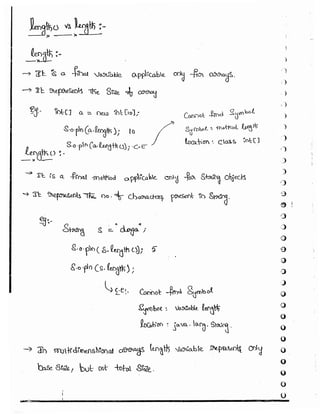 length() vs length :-
length :-
→ It is a final variable applicable only for arrays.
→ It represents the size of array
Eg. int[] a = new int[10];
S.o.pln(a.length); 10
S.o.pln(a.length()); C.E
Cannot find Symbol
Symbol : method length
location : class int[]
length() :-
→ It is a final method applicable only for String objects
→ It represents the no. of characters present in String.
eg:-
String s = "durga";
S.o.pln(s.length()); 5
S.o.pln(s.length);
C.E:- Cannot find Symbol
Symbol : variable length
location : java.lang.String
→ In multidimensional arrays length variable represents only
base size, but not total size.